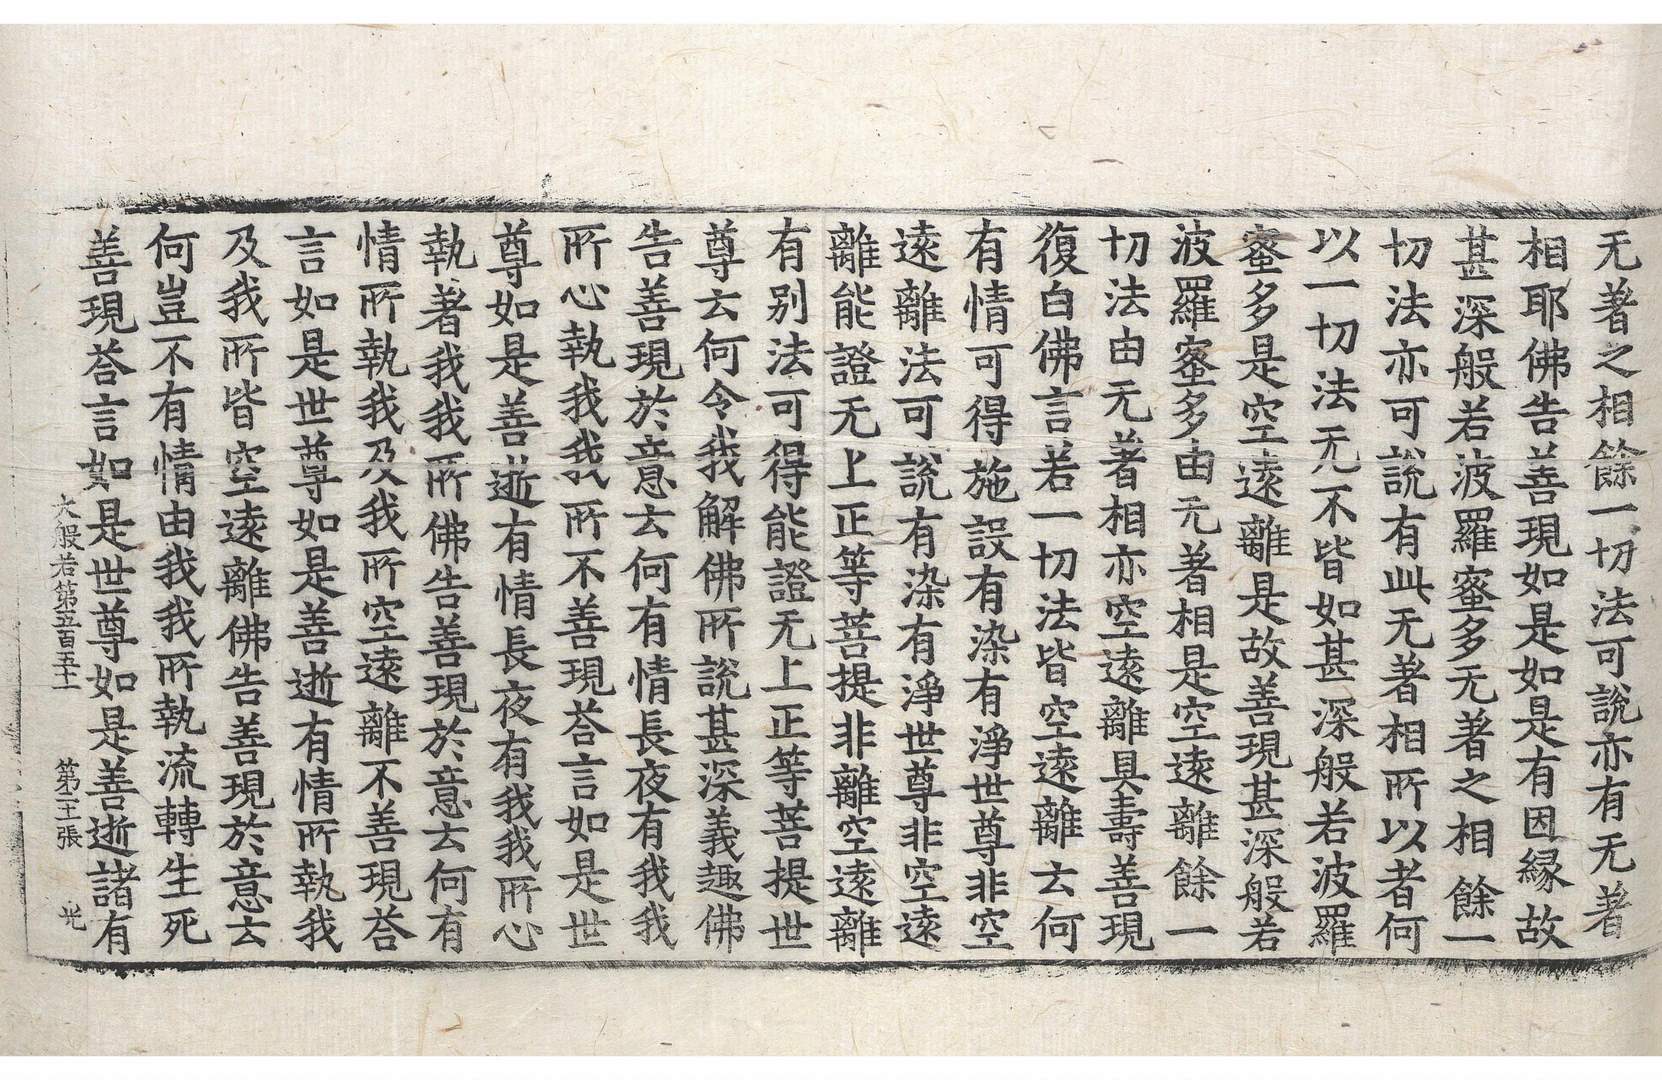 无著之相餘一切法可說亦有无著
相耶佛告善現如是如是有因緣故
甚深般若波羅蜜多无著之相餘一
切法亦可說有此无著相所以者何
以一切法无不皆如甚深般若波羅
蜜多是空遠離是故善現甚深般若
波羅蜜多由无著相是空遠離餘一
切法由无著相亦空遠離具壽善現
復白佛言若一切法皆空遠離云何
有情可得施設有染有淨世尊非空
遠離法可說有染有淨世尊非空遠
離能證无上正等菩提非離空遠離
有別法可得能證无上正等菩提世
尊云何令我解佛所說甚深義趣佛
告善現於意云何有情長夜有我我
所心執我我所不善現荅言如是世
尊如是善逝有情長夜有我我所心
執著我我所佛告善現於意云何有
情所執我及我所空遠離不善現荅
言如是世尊如是善逝有情所執我
及我所皆空遠離佛告善現於意云
何豈不有情由我我所執流轉生死
善現荅言如是世尊如是善逝諸有
大般若第五百五十一 第張 光